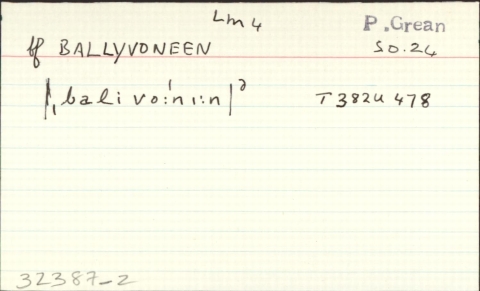 Lm 4 P. Grean
bf BALLYVONEEN SO.24
|ˌbalivoˈniːn|² T 3824 478
32387_2